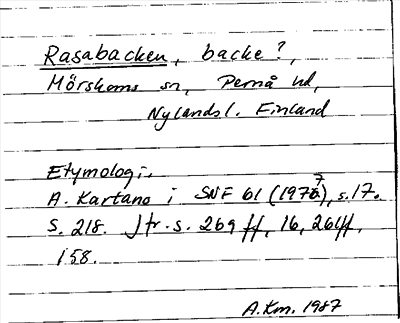 Rasabacken, backe?,
Mörskoms sn, Pernå hd,
Nylandsl. Finland
Etymologi.
A. Kartano i SNF 61 (1977), s. 17.
S. 218. Jfr. s. 269 ff, 16, 261ff,
158.
A.Km. 1987